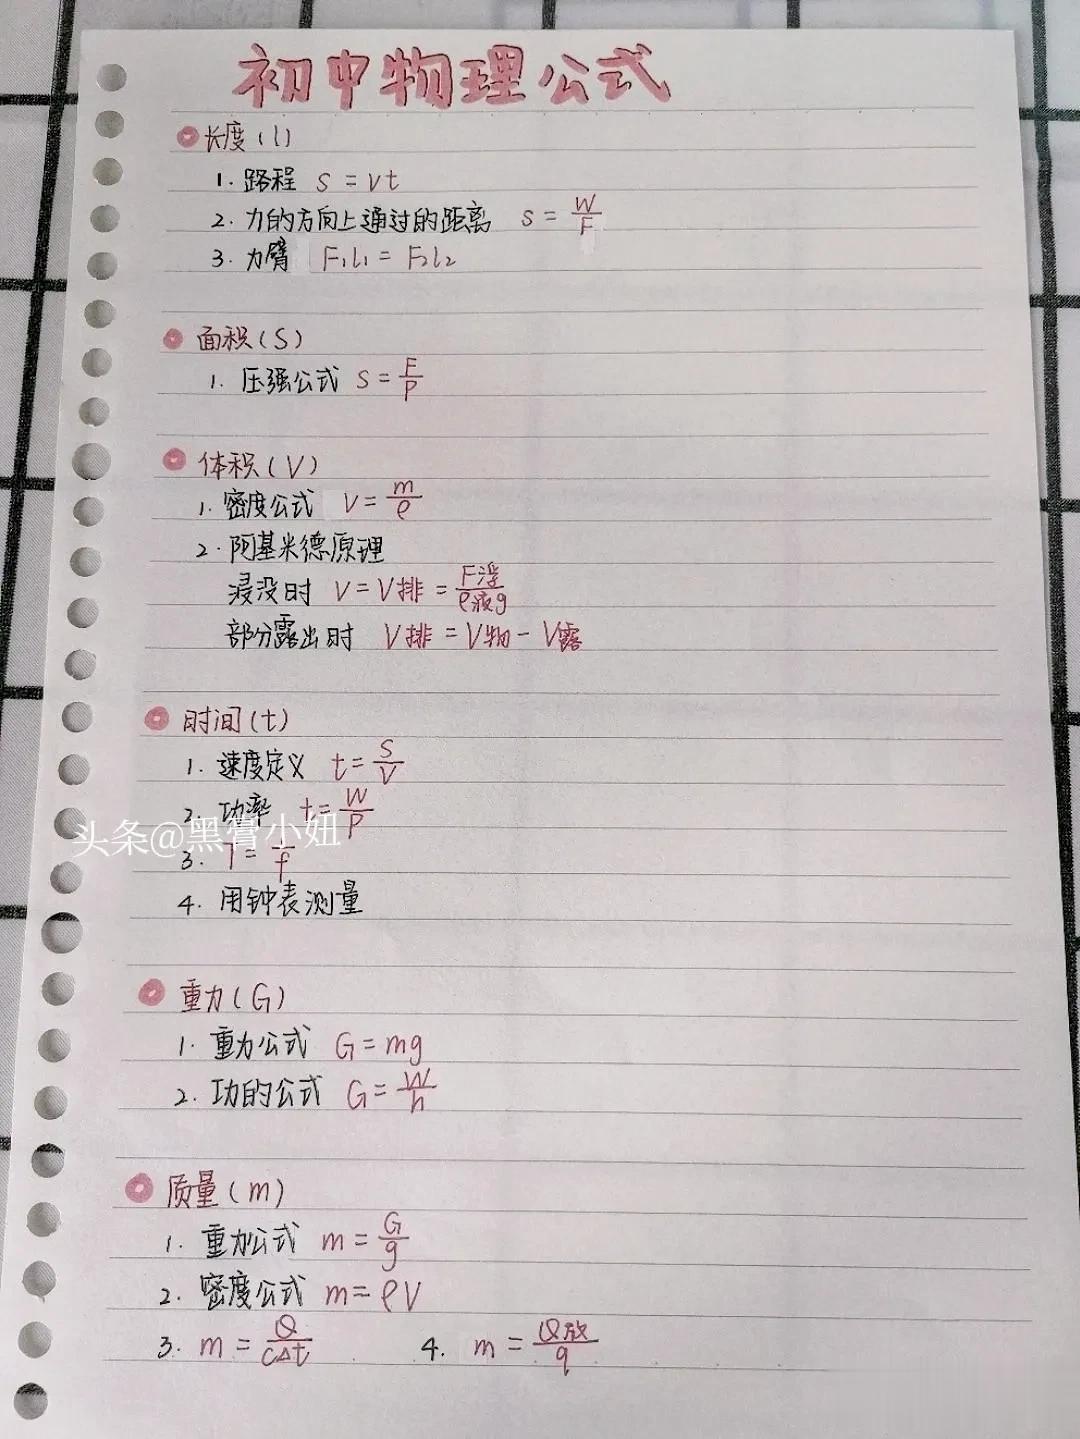 初中物理公式
长度(l)
1. 路程 s = vt
2. 力的方向上通过的距离 s = W/F
3. 力臂 F₁l₁ = F₂l₂
面积(S)
1. 压强公式 S = F/P
体积(V)
1. 密度公式 V = m/ρ
2. 阿基米德原理
浸没时 V = V排 = F浮/ρ液g
部分露出时 V排 = V物 - V露
时间(t)
1. 速度定义 t = S/V
2. 功率 t = W/P
头条@黑膏小妞
3. T = /f
4. 用钟表测量
重力(G)
1. 重力公式 G = mg
2. 功的公式 G = W/h
质量(m)
1. 重力公式 m = G/g
2. 密度公式 m = ρV
3. m = Q/cΔt 4. m = Q放/q